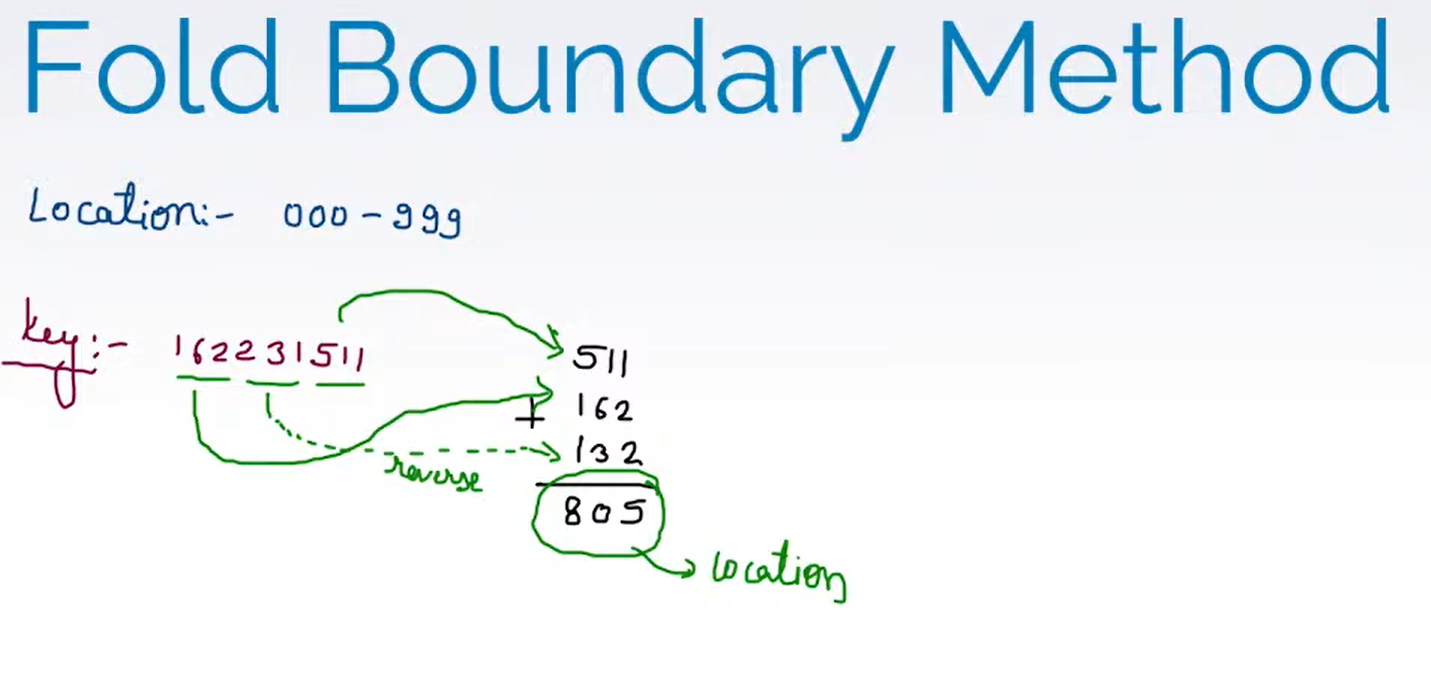 Fold Boundary Method
Location:- 000-999
key:- 162231511
511
+ 162
132
reverse
805
location